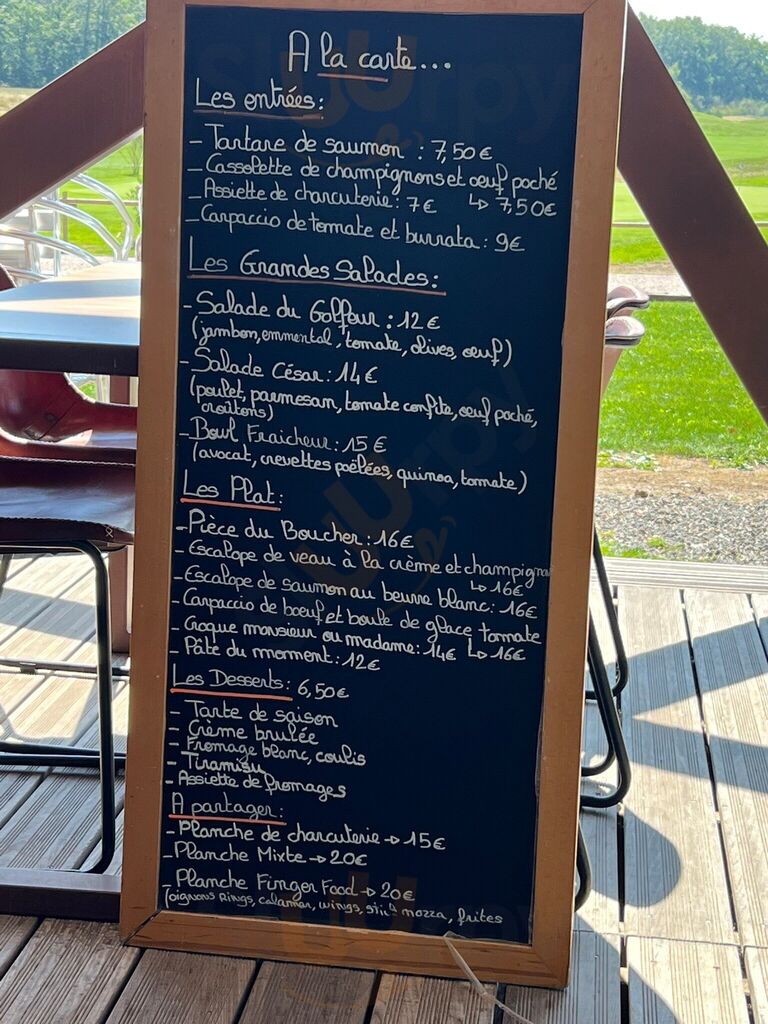 A la carte...
Les entrées:
- Tartare de saumon : 7,50€
- Cassolette de champignons et oeuf poché
- Assiette de charcuterie: 7€ ↳ 7,50€
- Carpaccio de tomate et burrata: 9€
Les Grandes Salades:
- Salade du Golfeur: 12€
(jambon, emmental, tomate, olives, oeuf)
- Salade César: 14€
(poulet, parmesan, tomate confite, oeuf poché,
croûtons)
- Bowl Fraicheur: 15€
(avocat, crevettes poêlées, quinoa, tomate)
Les Plat:
- Pièce du Boucher: 16€
- Escalope de veau à la crème et champignon
↳ 16€
- Escalope de saumon au beurre blanc: 16€
- Carpaccio de boeuf et boule de glace tomate
- Croque monsieur ou madame: 14€ ↳ 16€
- Pâte du morment: 12€
Les Desserts: 6,50€
- Tarte de saison
- Crème brulée
- Fromage blanc, coulis
- Tiramisu
- Assiette de fromages
A partager:
- Planche de charcuterie → 15€
- Planche Mixte → 20€
- Planche Finger Food → 20€
(oignons Rings, calamar, wings, stick mozza, frites